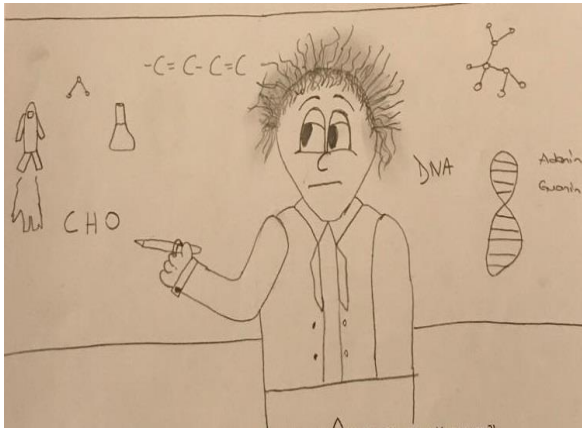 -C= C- C-C=C
CHO
DNA
Adenin
Guanin